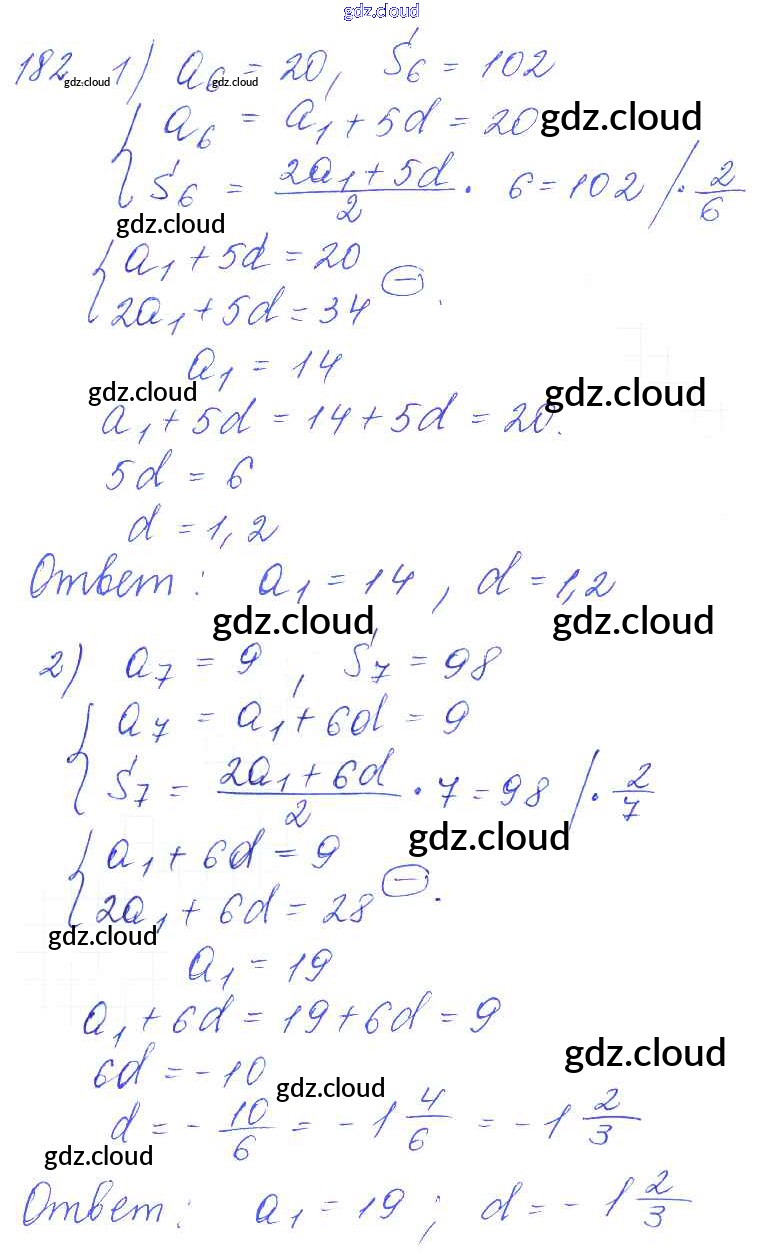 gdz.cloud
182 gdz.cloud 1) a₆ = 20, S₆ = 102 gdz.cloud
{ a₆ = a₁ + 5d = 20 gdz.cloud
S₆ = (2a₁ + 5d)/2 · 6 = 102 / · 2/6
gdz.cloud
{ a₁ + 5d = 20
2a₁ + 5d = 34 ⊖.
a₁ = 14
gdz.cloud gdz.cloud
a₁ + 5d = 14 + 5d = 20.
5d = 6
d = 1,2
Ответ: a₁ = 14, d = 1,2
gdz.cloud gdz.cloud
2) a₇ = 9, S₇ = 98
{ a₇ = a₁ + 6d = 9
S₇ = (2a₁ + 6d)/2 · 7 = 98 / · 2/7
gdz.cloud
{ a₁ + 6d = 9
2a₁ + 6d = 28 ⊖.
gdz.cloud
a₁ = 19
a₁ + 6d = 19 + 6d = 9
gdz.cloud
6d = -10
gdz.cloud
d = - 10/6 = -1 4/6 = -1 2/3
gdz.cloud
Ответ: a₁ = 19; d = -1 2/3